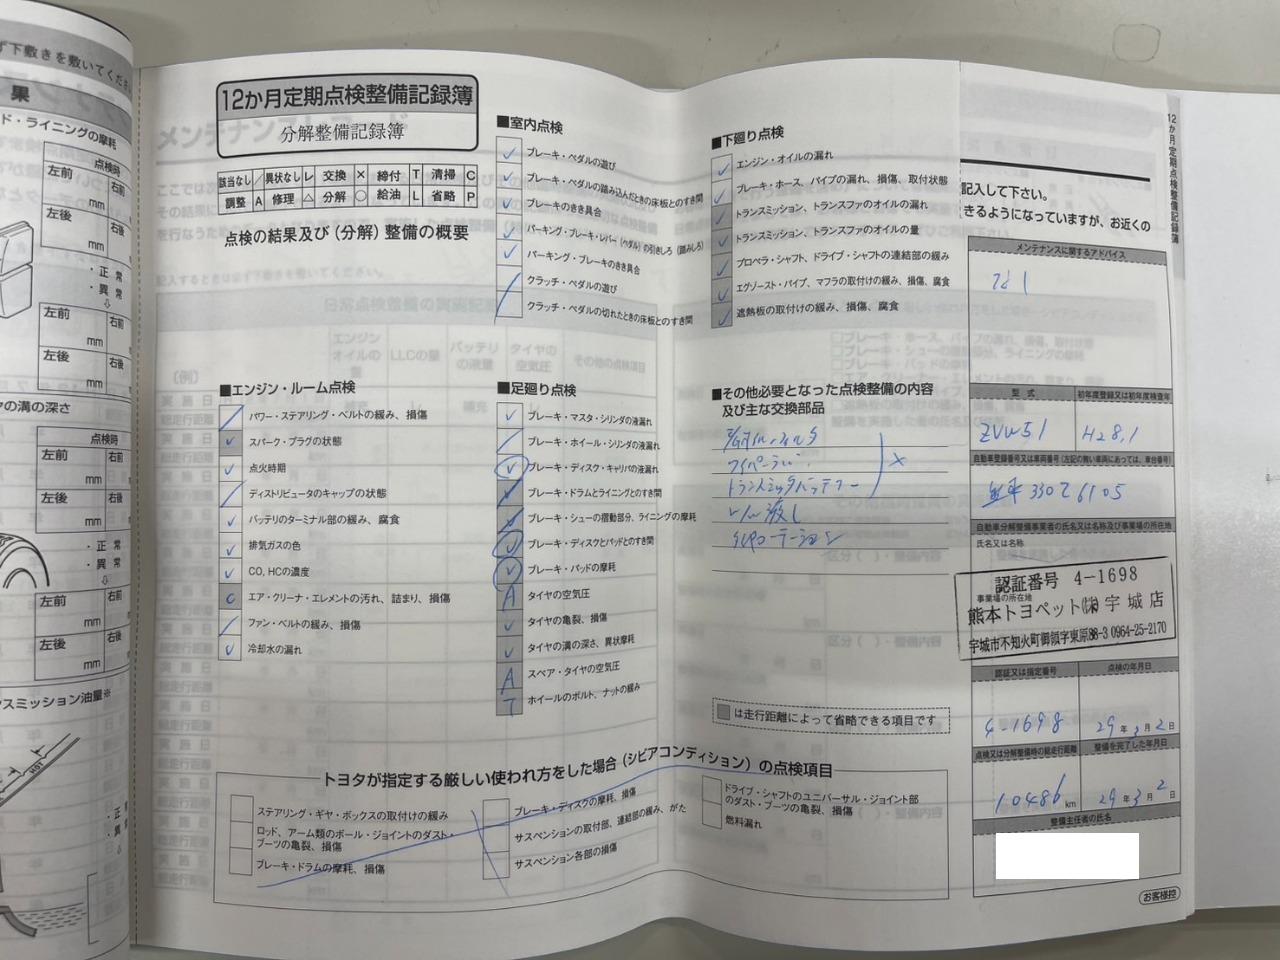 ず下敷きを敷いてくださ
果
ド・ライニングの摩耗
点検時
左前
右前
mm
左後
右後
mm
・正常
・異常
左前
右前
mm
左後
右後
mm
の溝の深さ
点検時
左前
右前
mm
左後
右後
mm
・正常
・異常
左前
右前
mm
左後
右後
mm
スミッション油量※
HOT
12か月定期点検整備記録簿
分解整備記録簿
該当なし ／ 異状なし レ 交換 × 締付 T 清掃 C
調整 A 修理 △ 分解 ○ 給油 L 省略 P
点検の結果及び(分解)整備の概要
■エンジン・ルーム点検
パワー・ステアリング・ベルトの緩み、損傷
スパーク・プラグの状態
点火時期
ディストリビュータのキャップの状態
バッテリのターミナル部の緩み、腐食
排気ガスの色
CO、HCの濃度
C エア・クリーナ・エレメントの汚れ、詰まり、損傷
ファン・ベルトの緩み、損傷
冷却水の漏れ
■室内点検
ブレーキ・ペダルの遊び
ブレーキ・ペダルの踏み込んだときの床板とのすき間
ブレーキのきき具合
パーキング・ブレーキ・レバー(ペダル)の引きしろ(踏みしろ)
パーキング・ブレーキのきき具合
クラッチ・ペダルの遊び
クラッチ・ペダルの切れたときの床板とのすき間
■足廻り点検
ブレーキ・マスタ・シリンダの液漏れ
ブレーキ・ホイール・シリンダの液漏れ
ブレーキ・ディスク・キャリパの液漏れ
ブレーキ・ドラムとライニングとのすき間
ブレーキ・シューの摺動部分、ライニングの摩耗
ブレーキ・ディスクとパッドとのすき間
ブレーキ・パッドの摩耗
A タイヤの空気圧
タイヤの亀裂、損傷
タイヤの溝の深さ、異状摩耗
A スペア・タイヤの空気圧
T ホイールのボルト、ナットの緩み
■下廻り点検
エンジン・オイルの漏れ
ブレーキ・ホース、パイプの漏れ、損傷、取付状態
トランスミッション、トランスファのオイルの漏れ
トランスミッション、トランスファのオイルの量
プロペラ・シャフト、ドライブ・シャフトの連結部の緩み
エグゾースト・パイプ、マフラの取付けの緩み、損傷、腐食
遮熱板の取付けの緩み、損傷、腐食
■その他必要となった点検整備の内容
及び主な交換部品
×
トランスミッタバッテリー
は走行距離によって省略できる項目です
トヨタが指定する厳しい使われ方をした場合(シビアコンディション)の点検項目
ステアリング・ギヤ・ボックスの取付けの緩み
ロッド、アーム類のボール・ジョイントのダスト・
ブーツの亀裂、損傷
ブレーキ・ドラムの摩耗、損傷
ブレーキ・ディスクの摩耗、損傷
サスペンションの取付部、連結部の緩み、がた
サスペンション各部の損傷
ドライブ・シャフトのユニバーサル・ジョイント部
のダスト・ブーツの亀裂、損傷
燃料漏れ
記入して下さい。
きるようになっていますが、お近くの
12か月定期点検整備記録簿
メンテナンスに関するアドバイス
型式
初年度登録又は初年度検査年
ZVW51
H28.1
自動車登録番号又は車両番号(左記の無い車両にあっては、車台番号)
330 6105
自動車分解整備事業者の氏名又は名称及び事業場の所在地
氏名又は名称
事業場の所在地
認証番号 4-1698
熊本トヨペット㈱宇城店
宇城市不知火町御領字東原88-3 0964-25-2170
認証又は指定番号
点検の年月日
4-1698
29年3月2日
点検又は分解整備時の総走行距離
整備を完了した年月日
10486 km
29年3月2日
整備主任者の氏名
お客様控